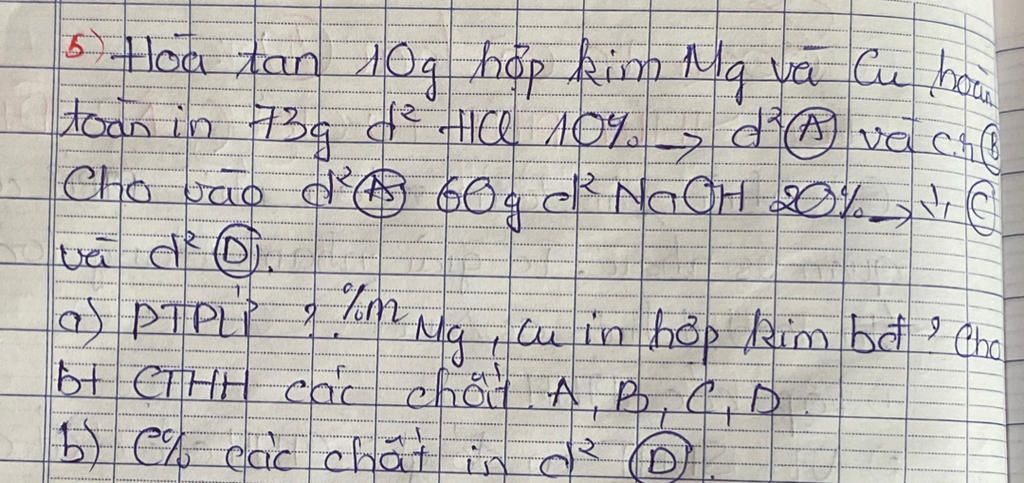 5) Hoà tan 10g hợp kim Mg và Cu hoàn
toàn in 73g d² HCl 10% → d² (A) và ch (B)
Cho vào d² (A) 60g d² NaOH 20% → ↓ (C)
và d² (D).
a) PTPƯ ? %m Mg, Cu in hợp kim bđ ? Cho
bt CTHH các chất A, B, C, D.
b) C% các chất in d² (D).